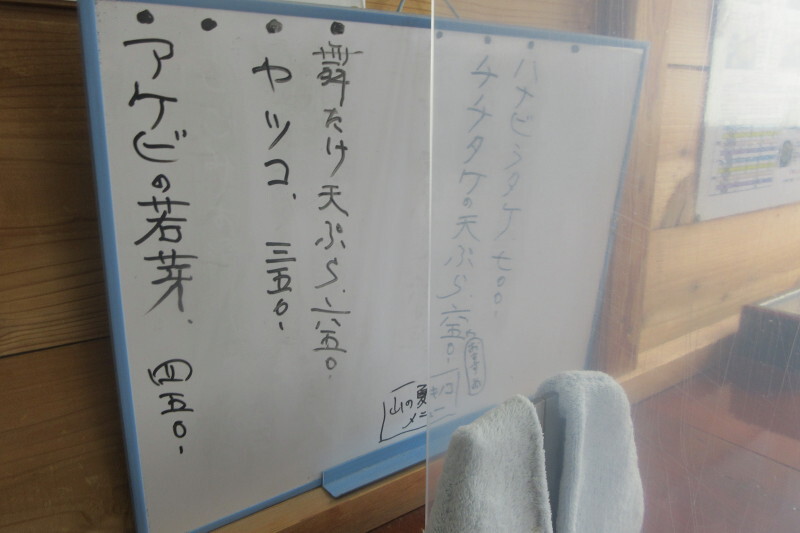 ハナビラタケ 七〇〇.
チチタケの天ぷら.六五〇.
おすすめ
舞たけ天ぷら.六五〇.
ヤツコ. 三五〇.
アケビの若芽. 四五〇.
山の夏
メニュー